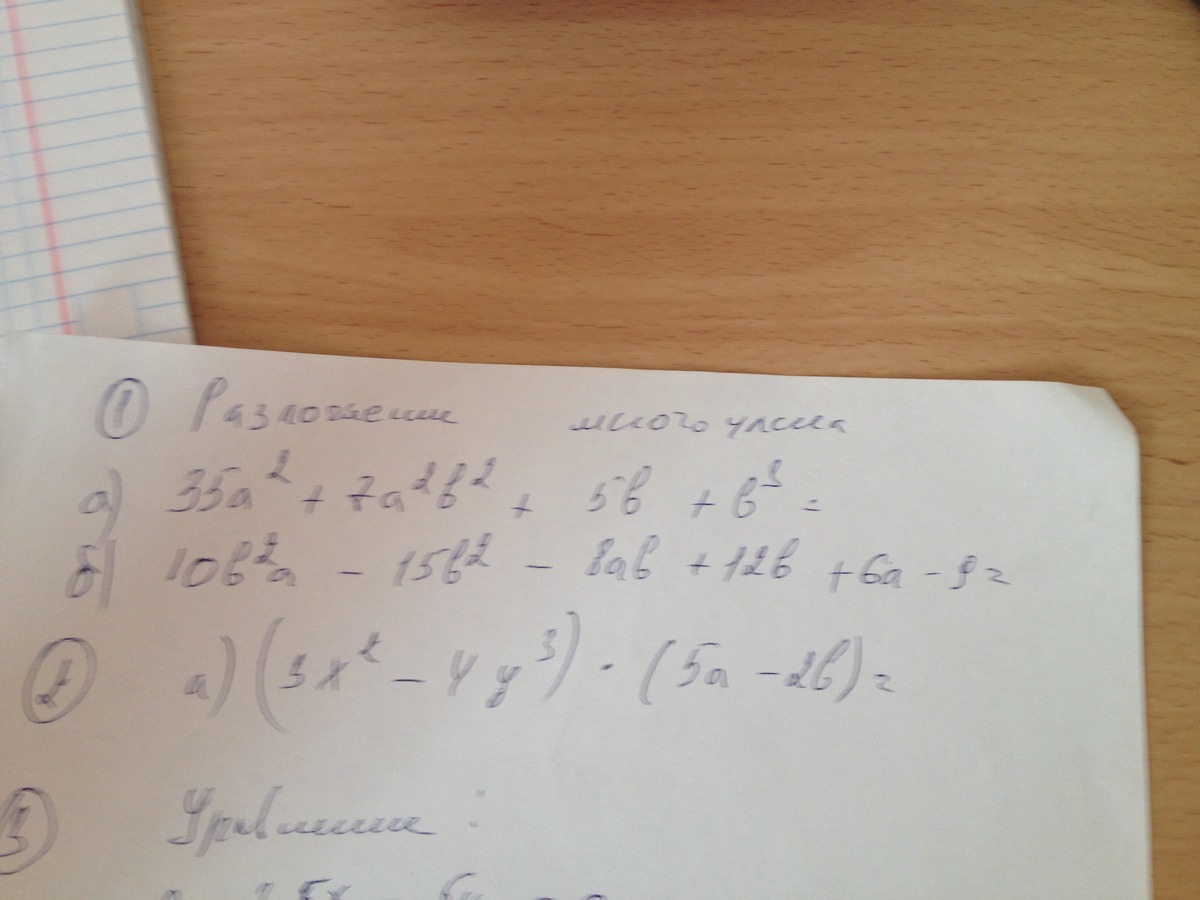 ① Разложение многочлена
а) 35a² + 7a²b² + 5b + b³ =
б) 10b²a - 15b² - 8ab + 12b + 6a - 9 =
② а) (3x² - 4y³) · (5a - 2b) =
③ Уравнение :